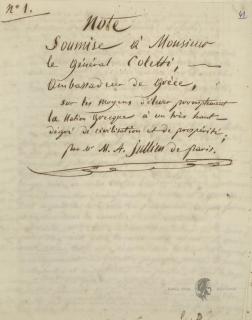 N° 1.
41
Note
Soumise à Monsieur
le Général Coletti,
Ambassadeur de Grèce,
sur les moyens d'élever promptement
la Nation Grecque à un très haut
dégré de civilisation et de prospérité;
par Mr M. A. Jullien de paris.